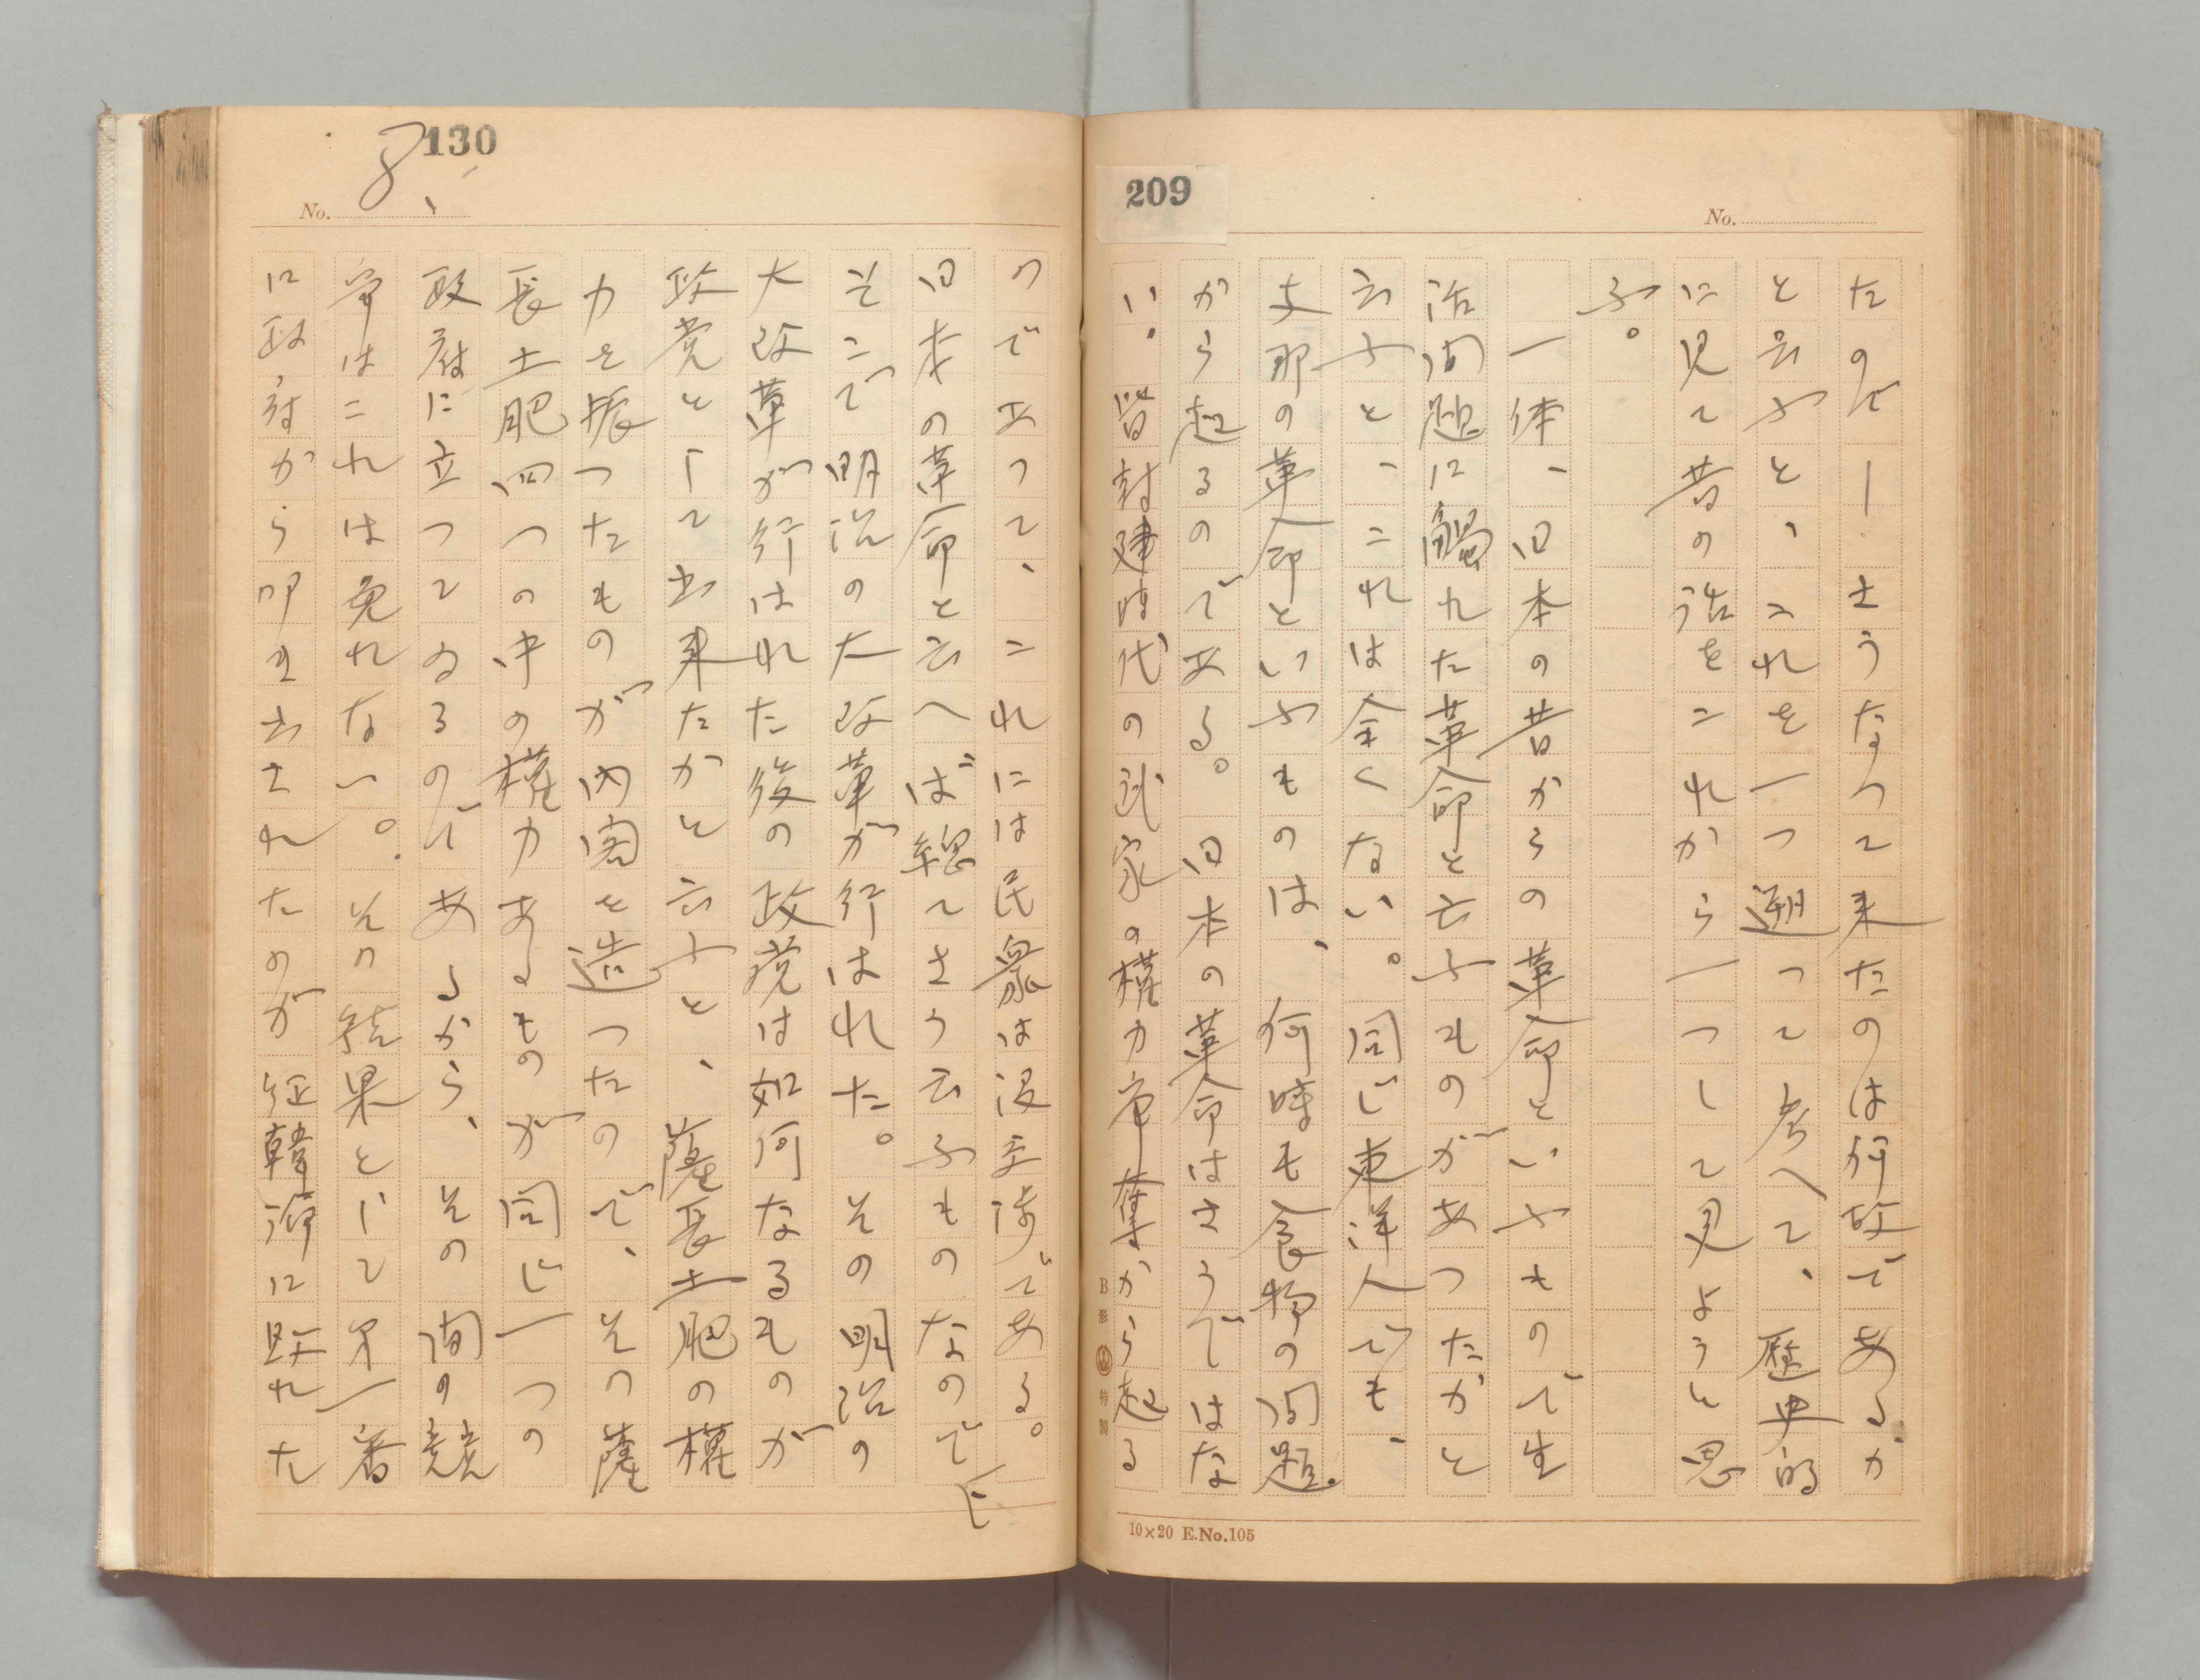 209
No.
たのだ――さうなつて来たのは何故であるか
と云ふと、これを一つ遡つて考へて、歴史的
に見て昔の話をこれから一つして見ようと思
ふ。
一体、日本の昔からの革命といふもので生
活問題に触れた革命と云ふものがあつたかと
云ふと、これは全くない。同じ東洋人でも、
支那の革命といふものは、何時も食物の問題
から起るのである。日本の革命はさうではな
い。皆封建時代の武家の権力争奪から起る
B形 特製
10×20 E.No.105
130
No. 8、
のであつて、これには民衆は没交渉である。
日本の革命と云へば総てさう云ふものなので
そこで明治の大改革が行はれた。その明治の
大改革が行はれた後の政党は如何なるものが
政党として出来たかと云ふと、薩長土肥の権
力を振つたものが内閣を造つたので、その薩
長土肥四つの中の権力あるものが同じ一つの
政府に立つてゐるのであるから、その間の競
争はこれは免れない。その結果として第一番
に政府から叩き出されたのが征韓論に敗れた